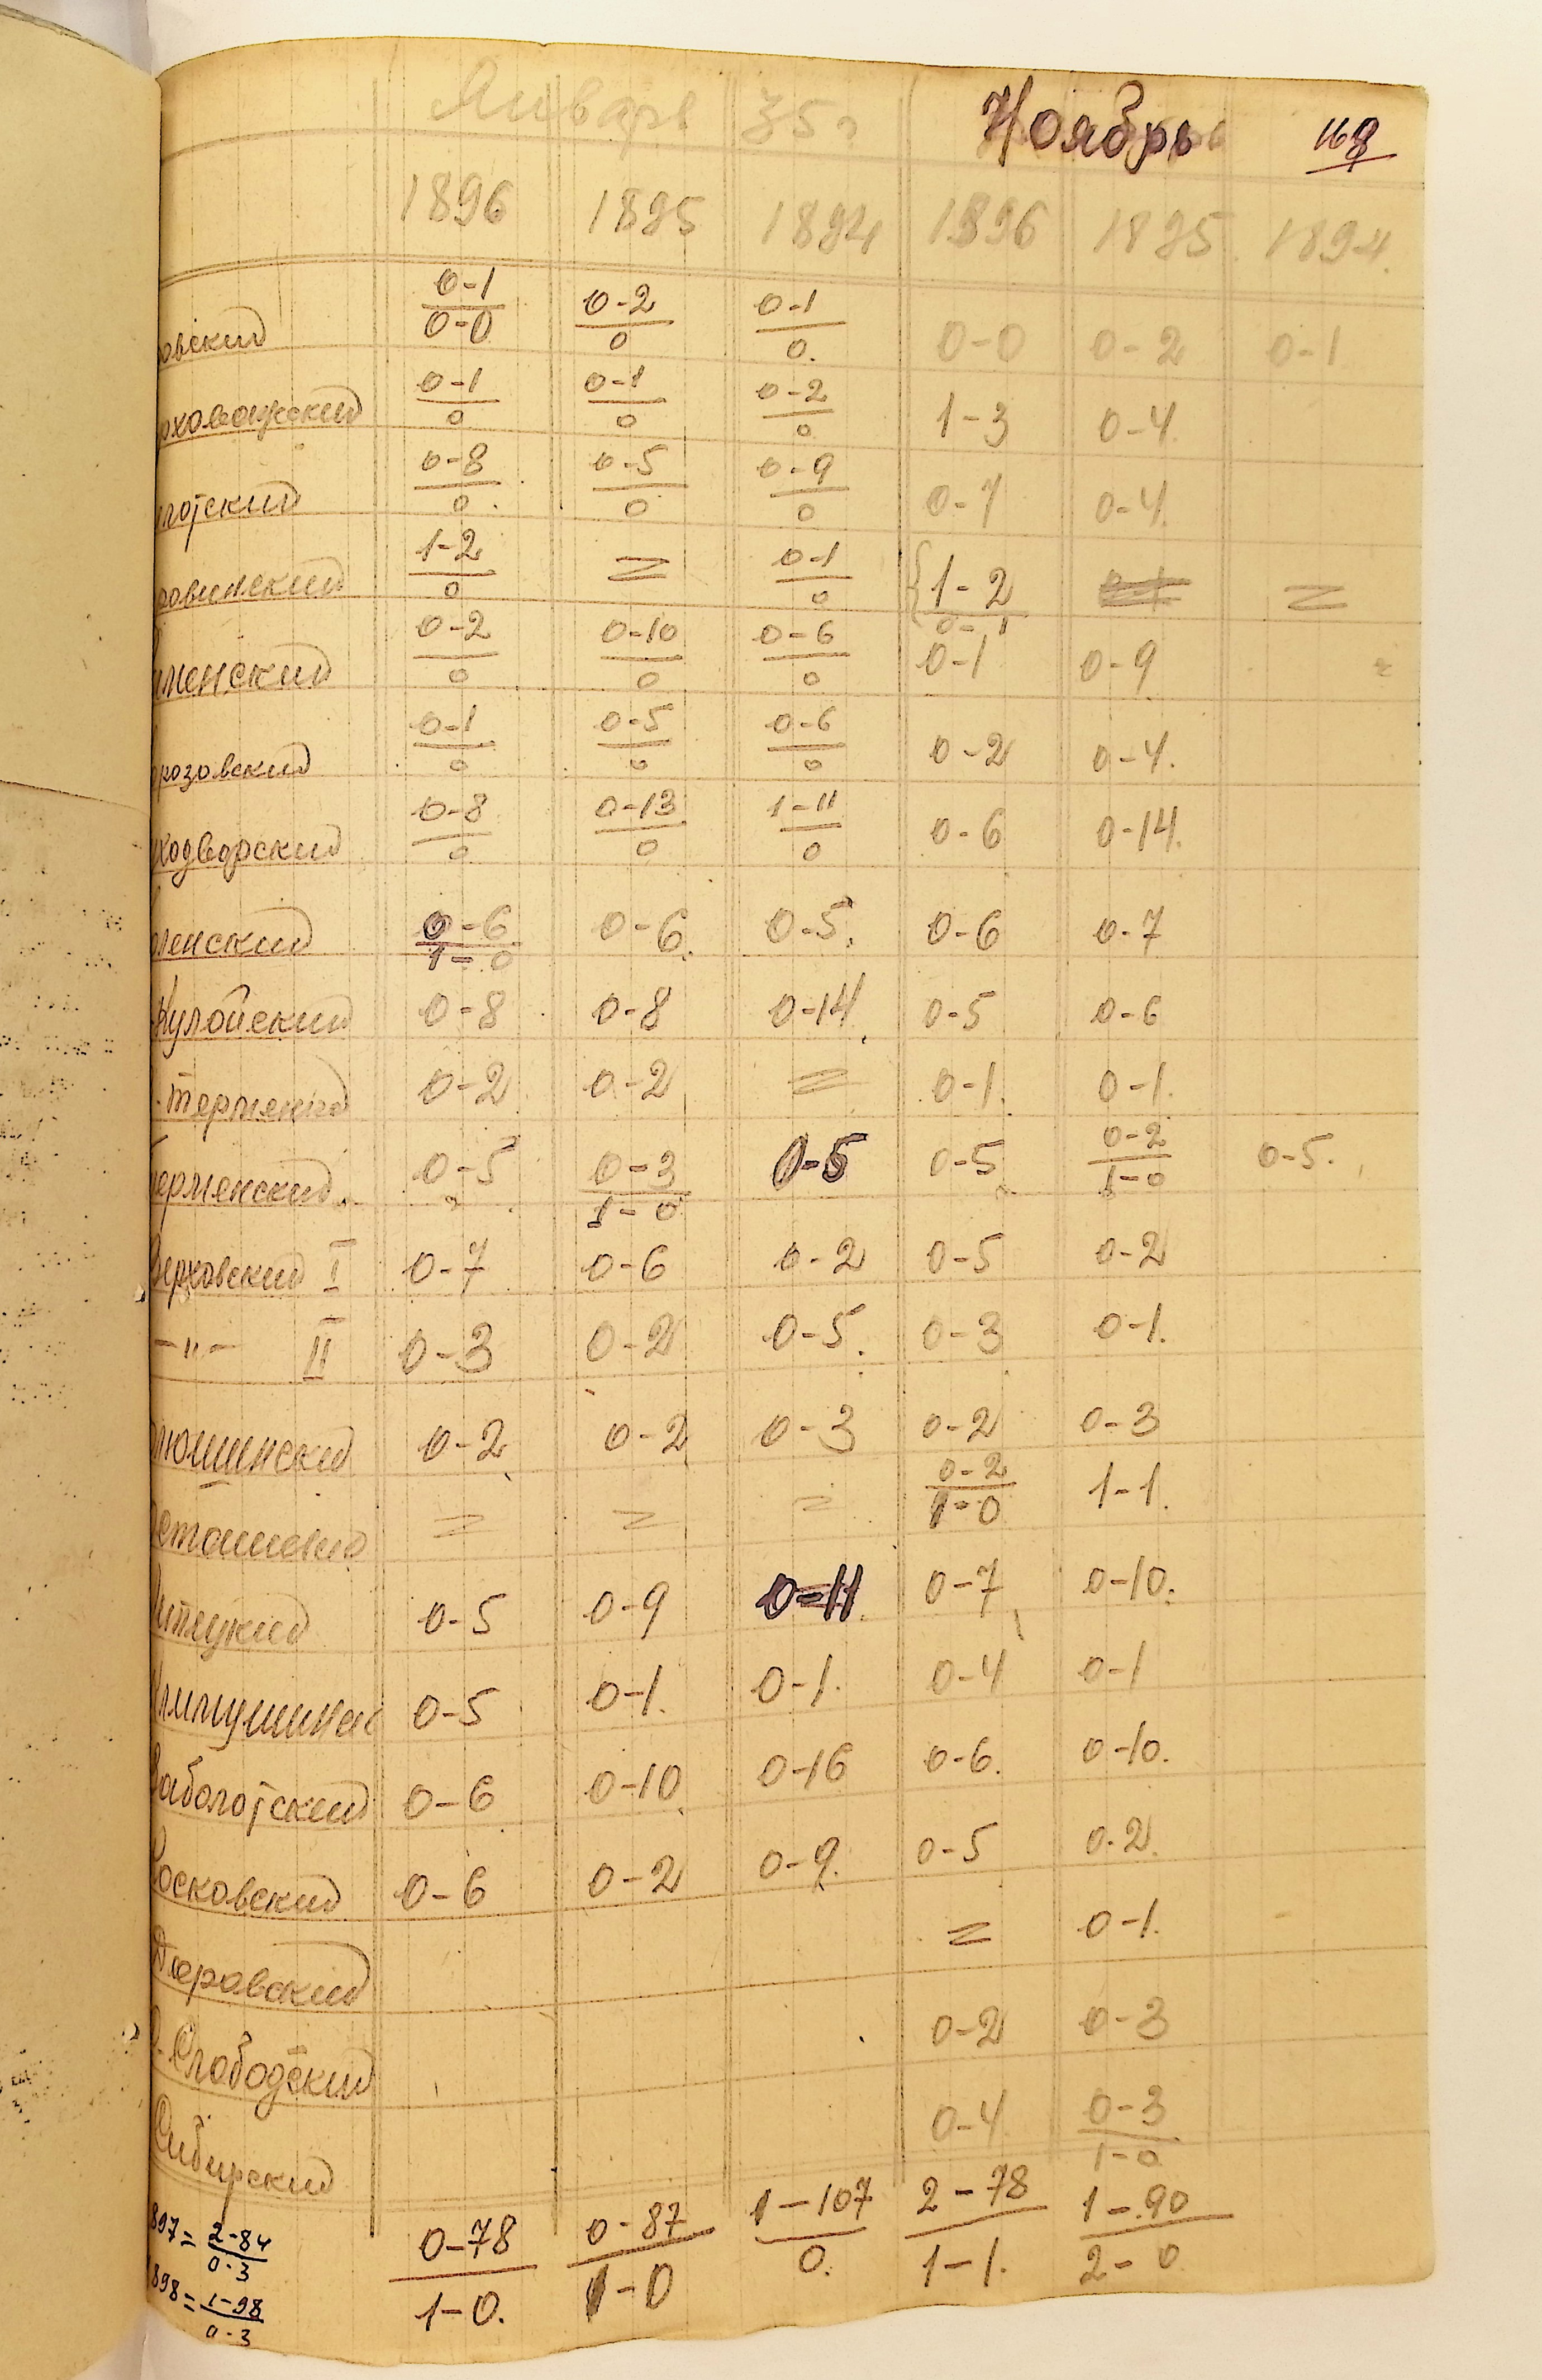 Январь 35 г Ноябрь 168
1896 1895 1894 1896 1895 1894.
овский 0-1/0-0 0-2/0 0-1/0. 0-0 0-2 0-1
рховажский 0-1/0 0-1/0 0-2/0 1-3 0-4.
лотский 0-8/0. 0-5/0 0-9/0 0-7 0-4.
ровинский 1-2/0 = 0-1/0 {1-2/0-1 =
менский 0-2/0 0-10/0 0-6/0 0-1 0-9
розовский 0-1/0 0-5/0 0-6/0 0-2 0-4.
ходворский 0-8/0 0-13/0 1-11/0 0-6 0-14.
ленский 0-6/1-0 0-6. 0-5. 0-6 0-7
Кулойский 0-8 0-8 0-14. 0-5 0-6
-Терменгск 0-2 0-2 = 0-1. 0-1.
ерменский 0-5 0-3/1-0 0-5 0-5 0-2/1-0 0-5.
Верховский I 0-7 0-6 0-2 0-5 0-2
-"- II 0-3 0-2 0-5. 0-3 0-1.
люшински 0-2 0-2 0-3 0-2 0-3
= = = 0-2/1-0 1-1.
0-5 0-9 0-11. 0-7 0-10.
0-5 0-1. 0-1. 0-4 0-1
аболотский 0-6 0-10 0-16 0-6. 0-10.
осковский 0-6 0-2 0-9. 0-5 0-2.
Двровский = 0-1.
Слободский 0-2 0-3
Сибирский 0-4 0-3/1-0
897= 2-84/0-3 0-78/1-0. 0-87/1-0 1-107/0. 2-78/1-1. 1-90/2-0
898= 1-98/0-3